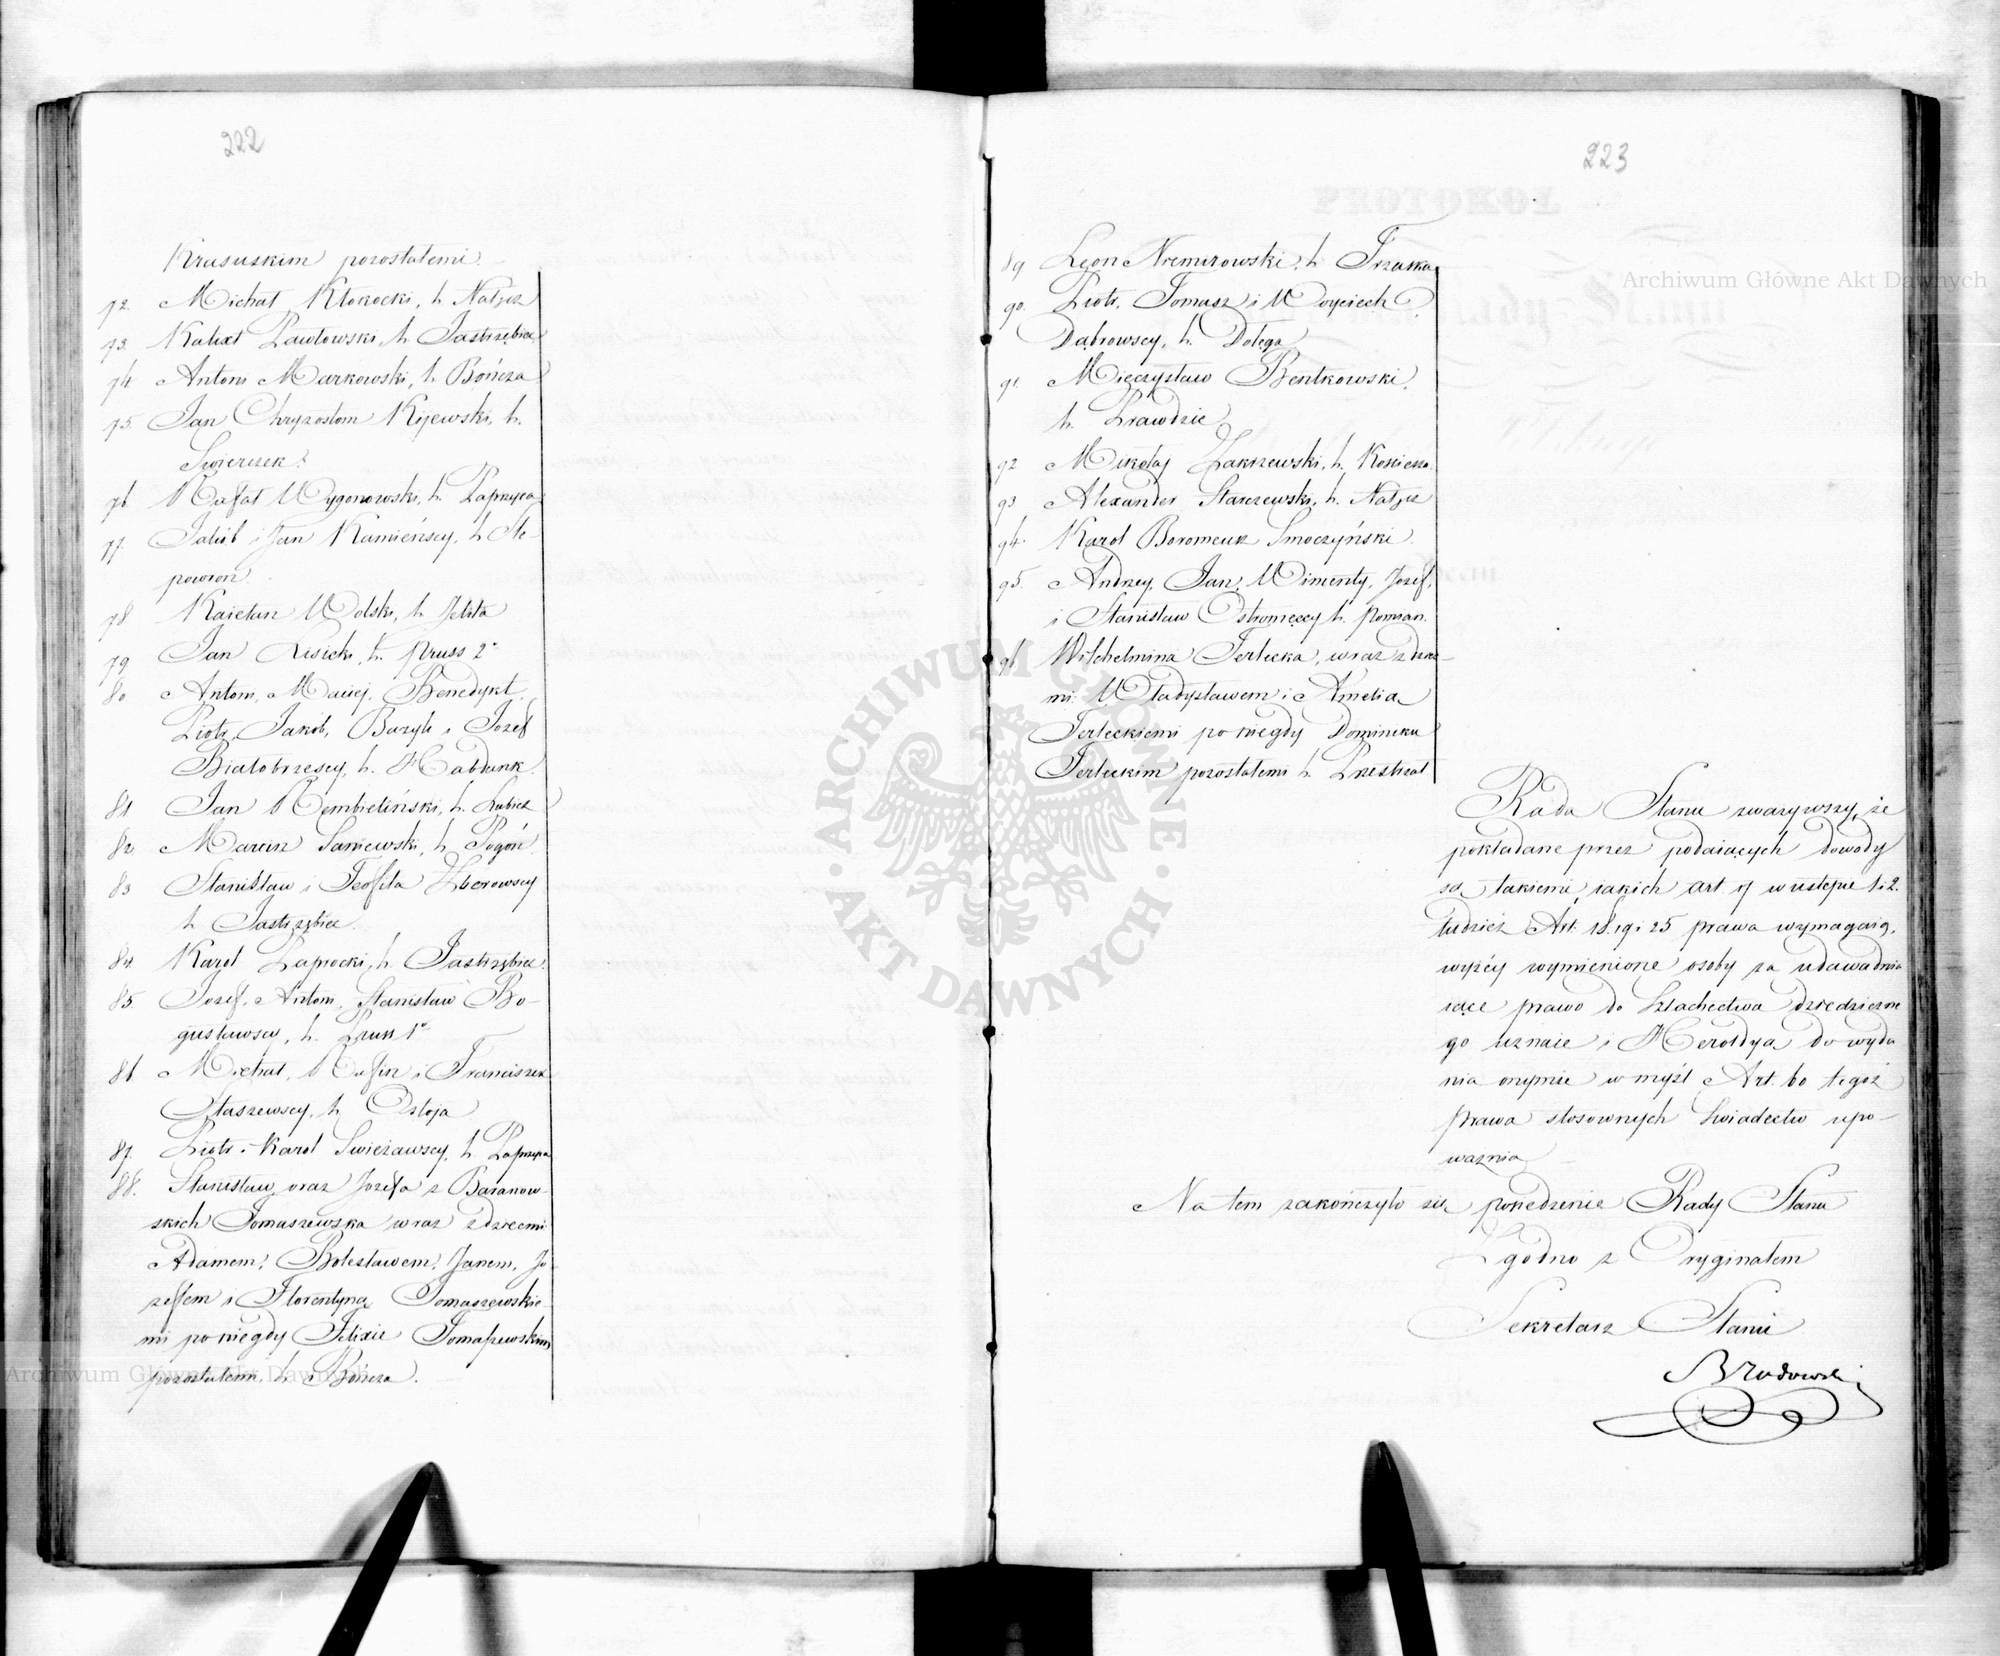 222
Krasuskim pozostałemi
72. Michał Kłokocki, h. Nałęcz
73. Kalixt Pawłowski, h. Jastrzębiec
74 Antoni Markowski, h. Bończa
75. Jan Chryzostom Kijewski, h.
Swierczek
76. Rafał Wygonowski, h. Paprzyca
77. Jakób i Jan Kamieńscy, h. Śle-
powron
78 Kaietan Wolski, h. Jelita
79 Jan Lisicki, h. Pruss 2°
80 Antoni, Maciej, Benedykt,
Piotr, Jakób, Bazyli i Józef
Białobrzescy, h. Habdank.
81 Jan Rembieliński, h. Lubicz
82 Marcin Saniewski, h. Pogoń
83 Stanisław i Teofila Zborowscy
h. Jastrzębiec.
84. Karol Paprocki, h. Jastrzębiec.
85. Józef, Antoni, Stanisław Bo-
gusławscy, h. Pruss 1°
86. Michał, Rufin i Franciszek
Staszewscy, h. Ostoja
87. Piotr i Karol Swieżawscy, h. Paprzyca
88. Stanisław oraz Józefa z Baranow-
skich Tomaszewska wraz z dziećmi
Adamem, Bolesławem, Janem, Jó-
zefem i Florentyną Tomaszewskie-
mi po niegdy Felixie Tomaszewskim
pozostałemi, h. Bończa.
223
89 Leon Niemirowski, h. Trzaska
90. Piotr, Tomasz i Woyciech
Dąbrowscy, h. Dołęga
91 Mieczysław Bentkowski,
h. Prawdzic
92 Mikołaj Zakrzewski, h. Kościesza
93 Alexander Starczewski, h. Nałęcz
94. Karol Boromeusz Smoczyński.
95. Andrzey, Jan, Wincenty, Józef,
i Stanisław Ostromęccy h. Pomian.
96. Wilhelmina Terlecka, wraz z dzieć-
mi Władysławem i Amelią
Terleckiemi po niegdy Dominiku
Terleckim pozostałemi h. Przestrzał
Rada Stanu zważywszy, że
pokładane przez podaiących dowody
są takiemi iakich art. 7 w ustępie 1 i 2.
tudzież Art. 18. 19 i 25 prawa wymagaią,
wyżéy wymienione osoby za udawadnia
iące prawo do Szlachectwa dziedziczne
go uznaie i Heroldyą do wyda
nia onymże w myśl Art. 60 tegoż
prawa stosownych świadectw upo-
ważnia
Na tem zakończyło się posiedzenie Rady Stanu
Zgodno z Oryginałem
Sekretarz Stanu
Brodowski
ARCHIWUM GŁÓWNE AKT DAWNYCH
Archiwum Główne Akt Dawnych
Archiwum Główne Akt Dawnych